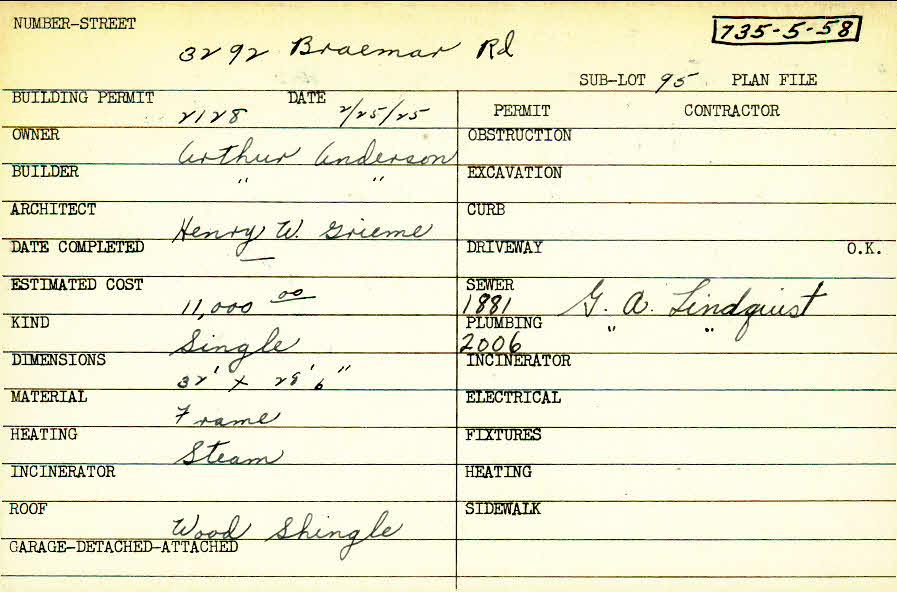 NUMBER-STREET
3292 Braemar Rd
735-5-58
SUB-LOT 95 PLAN FILE
BUILDING PERMIT 2128 DATE 2/25/25
PERMIT CONTRACTOR
OWNER Arthur Anderson
OBSTRUCTION
BUILDER " "
EXCAVATION
ARCHITECT Henry W. Grieme
CURB
DATE COMPLETED —
DRIVEWAY O.K.
ESTIMATED COST 11,000 00
SEWER 1881 G. A. Lindquist
KIND Single
PLUMBING 2006 " "
DIMENSIONS 32' x 28' 6"
INCINERATOR
MATERIAL Frame
ELECTRICAL
HEATING Steam
FIXTURES
INCINERATOR
HEATING
ROOF Wood Shingle
SIDEWALK
GARAGE-DETACHED-ATTACHED